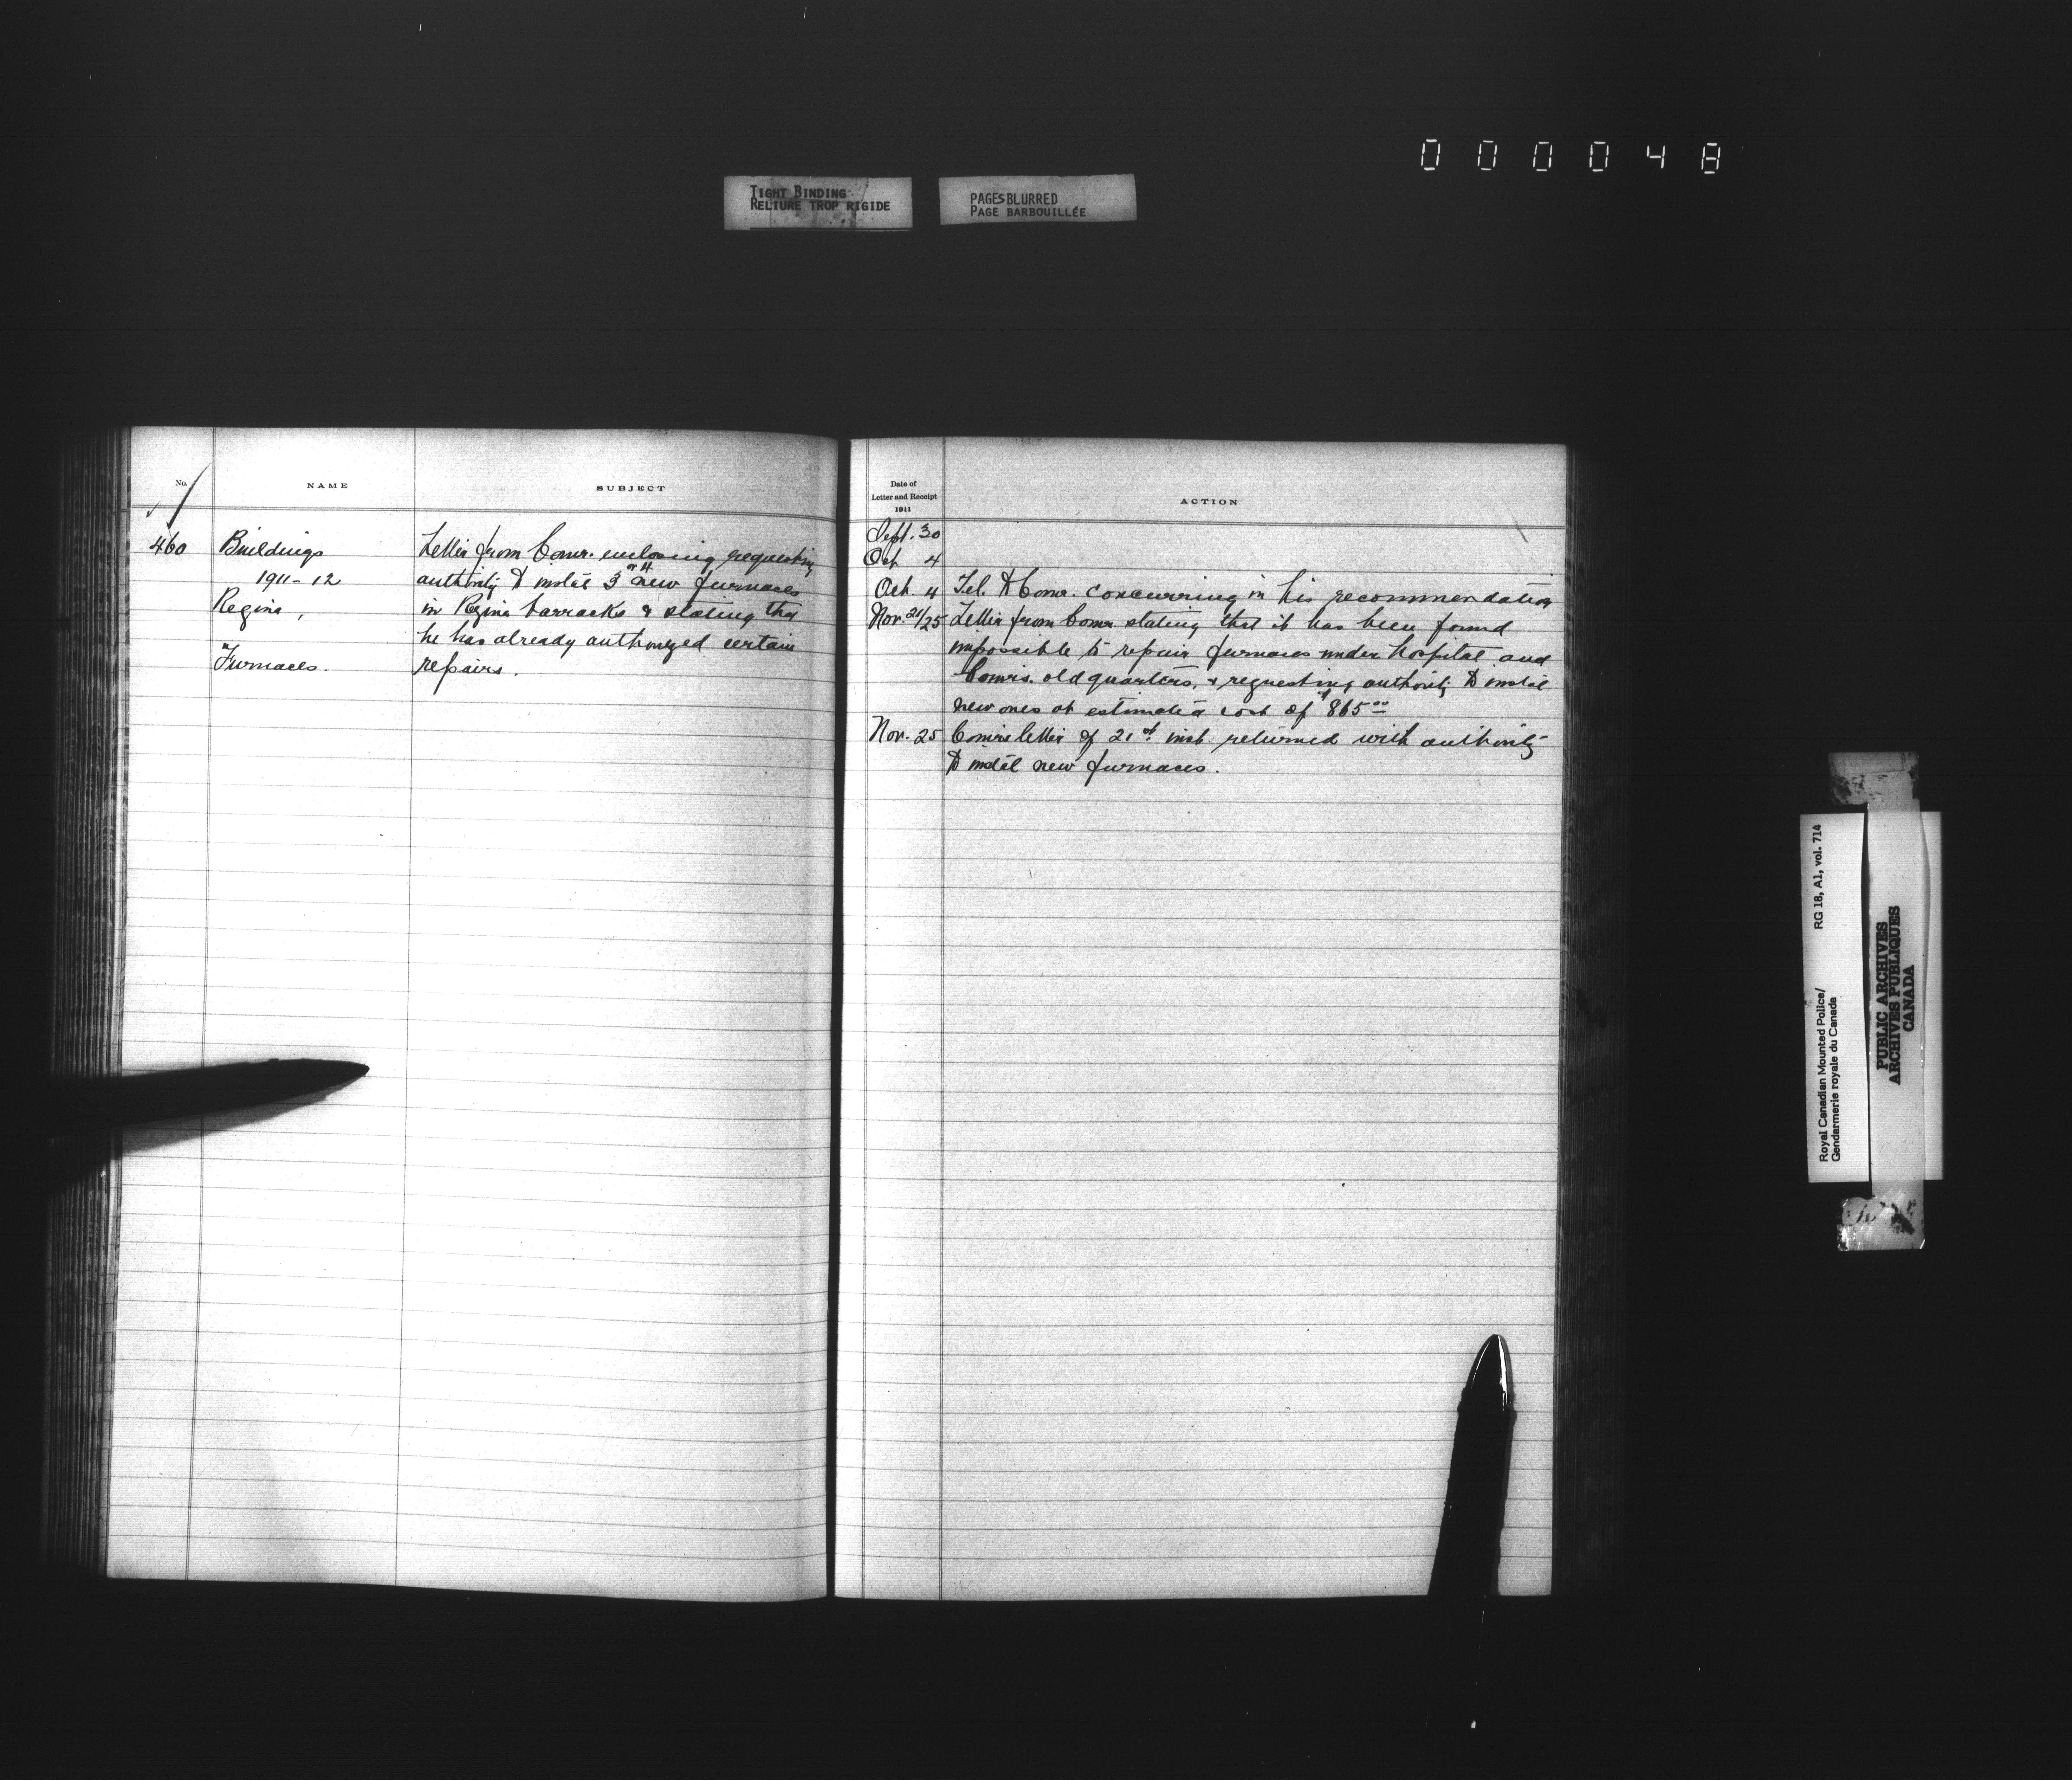 000048
TIGHT BINDING
RELIURE TROP RIGIDE
PAGES BLURRED
PAGE BARBOUILLÉE
No.
NAME
SUBJECT
460
Buildings
1911-12
Regina,
Furnaces.
Letter from Comr. enclosing requesting
authority to instal 3 or 4 new furnaces
in Regina barracks & stating that
he has already authorized certain
repairs.
Date of
Letter and Receipt
1911
ACTION
Sept. 30
Oct 4
Oct. 4 Tel. to Comr. concurring in his recommendation
Nov. 21/25 Letter from Comr. stating that it has been found
impossible to repair furnaces under hospital and
Comrs. old quarters, & requesting authority to instal
new ones at estimated cost of $865.00
Nov. 25 Comrs letter of 21st inst. returned with authority
to instal new furnaces.
RG 18, A1, vol. 714
Royal Canadian Mounted Police/
Gendarmerie royale du Canada
PUBLIC ARCHIVES
ARCHIVES PUBLIQUES
CANADA